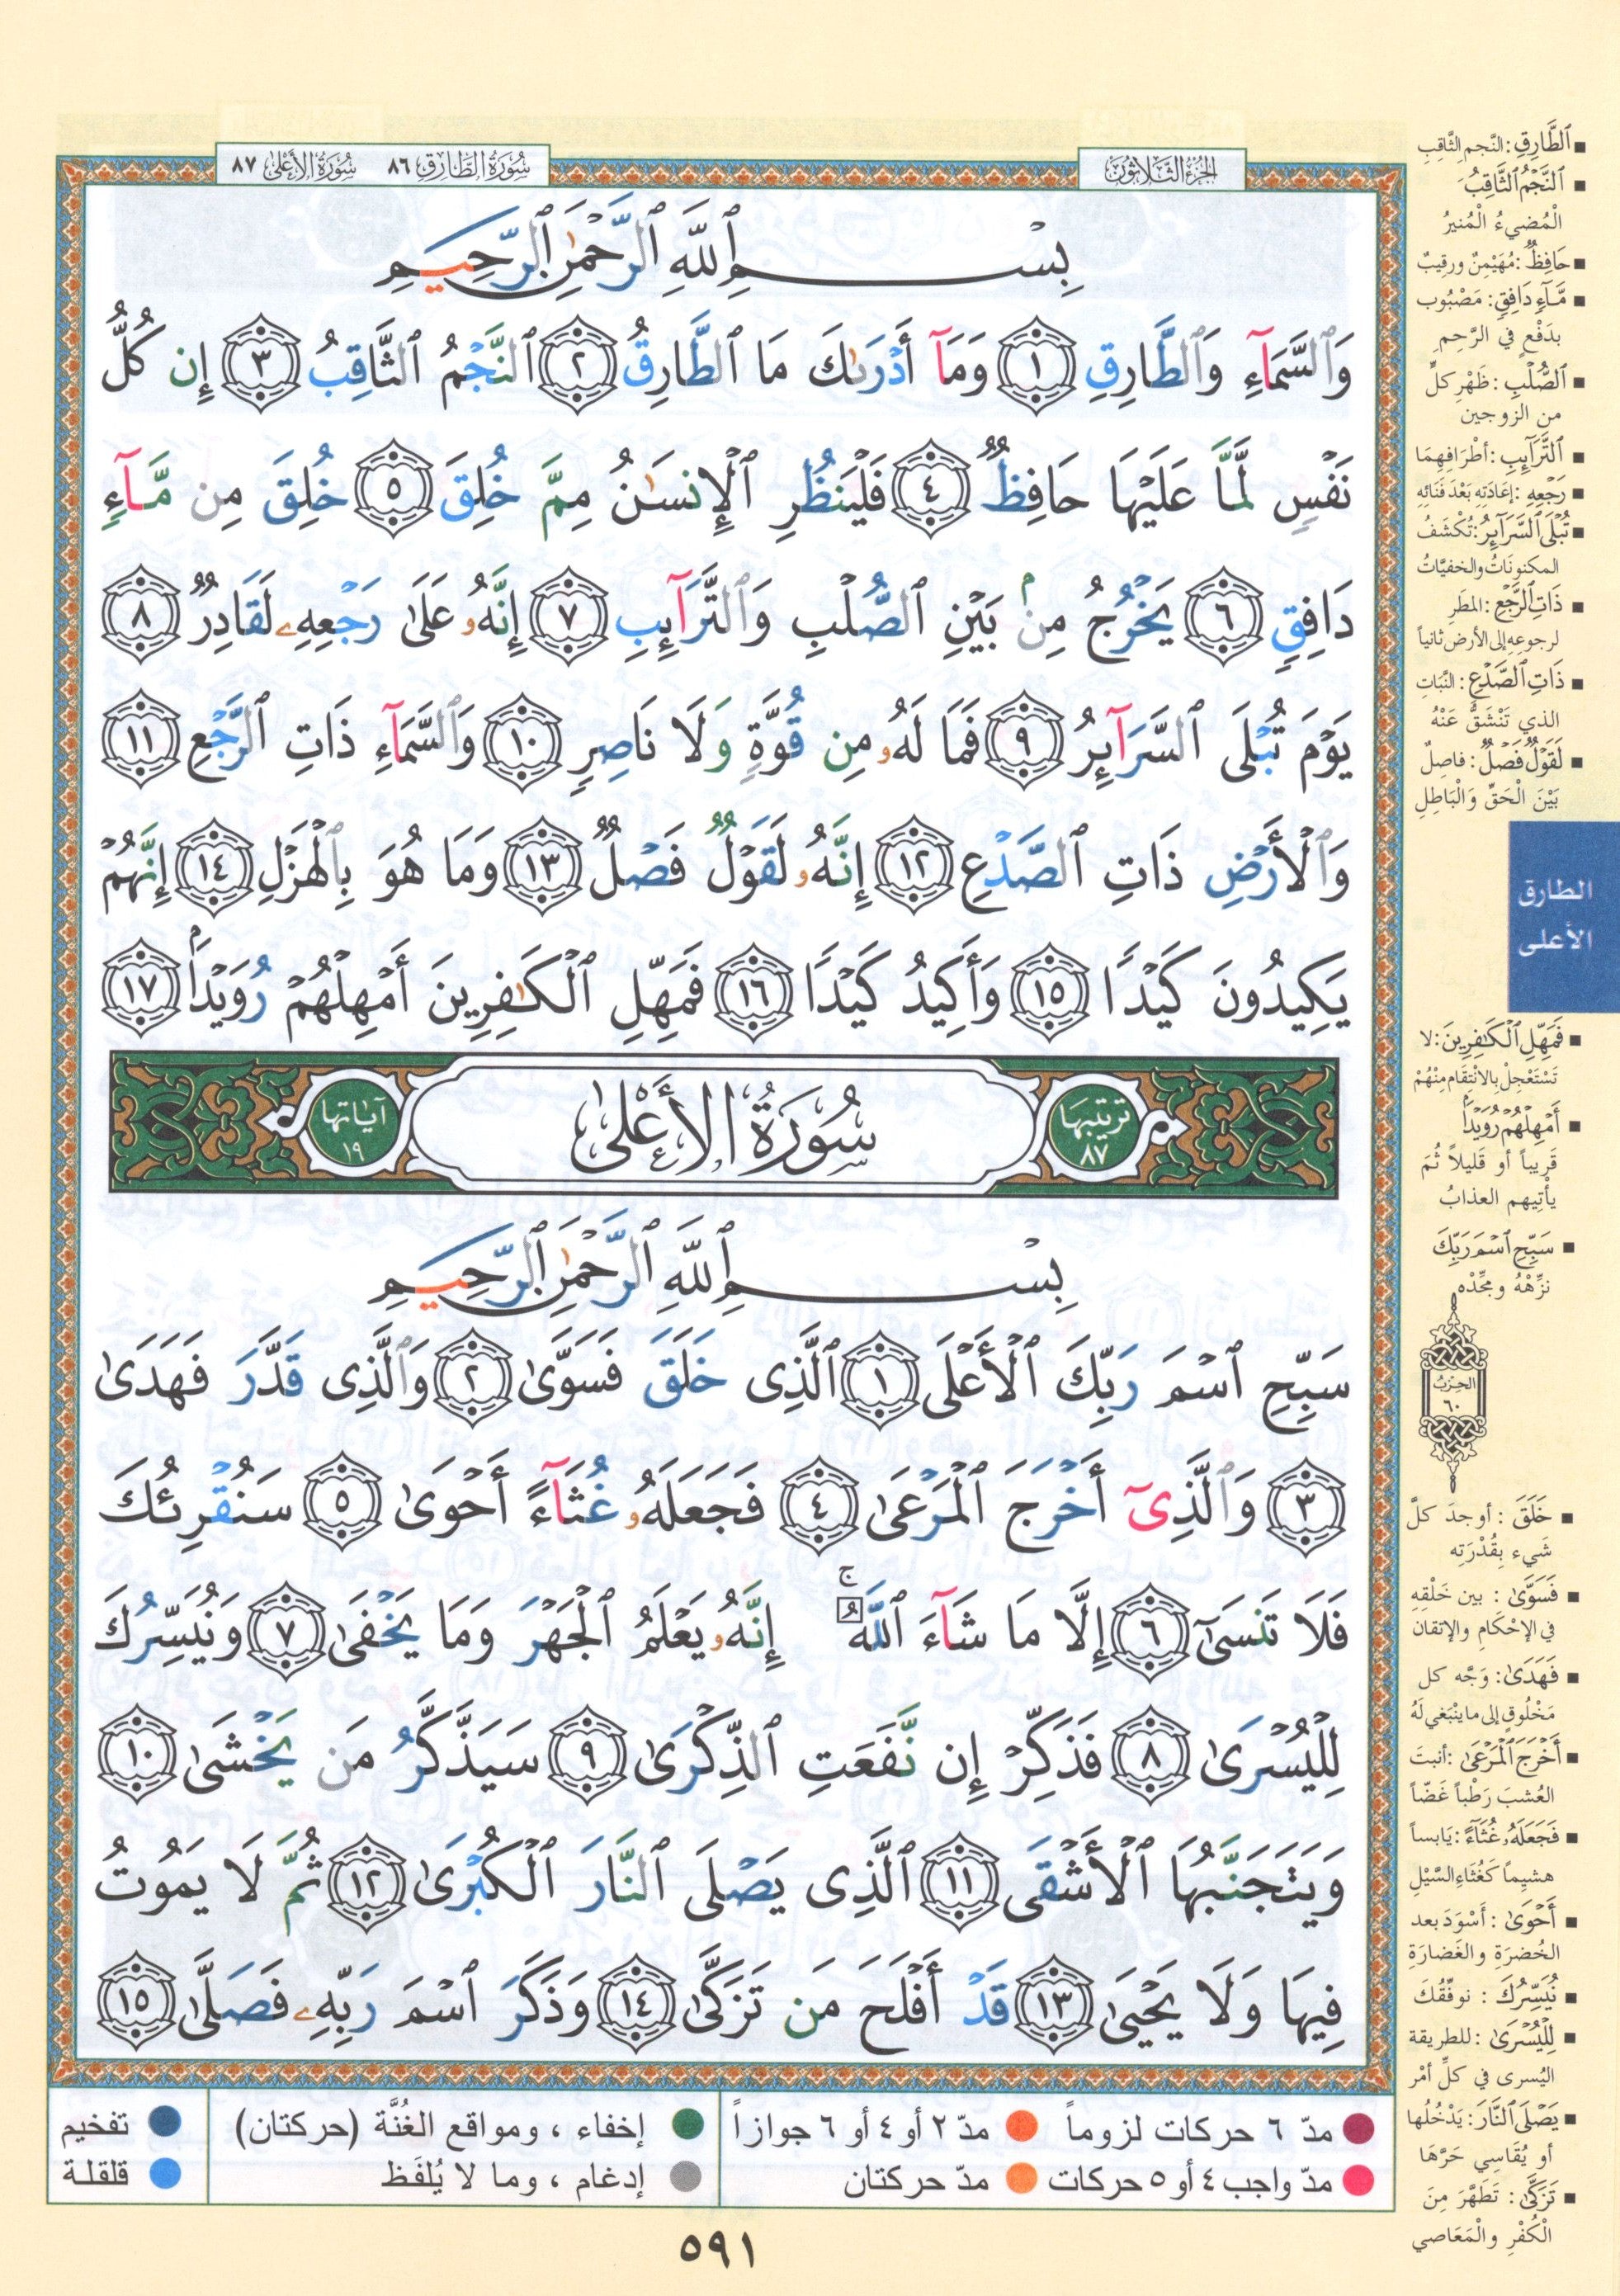 الجزء الثلاثون
سورة الطارق ٨٦ سورة الأعلى ٨٧
بِسْمِ ٱللَّهِ ٱلرَّحْمَٰنِ ٱلرَّحِيمِ
وَٱلسَّمَآءِ وَٱلطَّارِقِ ١ وَمَآ أَدْرَىٰكَ مَا ٱلطَّارِقُ ٢ ٱلنَّجْمُ ٱلثَّاقِبُ ٣ إِن كُلُّ
نَفْسٍ لَّمَّا عَلَيْهَا حَافِظٌ ٤ فَلْيَنظُرِ ٱلْإِنسَٰنُ مِمَّ خُلِقَ ٥ خُلِقَ مِن مَّآءٍ
دَافِقٍ ٦ يَخْرُجُ مِنۢ بَيْنِ ٱلصُّلْبِ وَٱلتَّرَآئِبِ ٧ إِنَّهُۥ عَلَىٰ رَجْعِهِۦ لَقَادِرٌ ٨
يَوْمَ تُبْلَى ٱلسَّرَآئِرُ ٩ فَمَا لَهُۥ مِن قُوَّةٍ وَلَا نَاصِرٍ ١٠ وَٱلسَّمَآءِ ذَاتِ ٱلرَّجْعِ ١١
وَٱلْأَرْضِ ذَاتِ ٱلصَّدْعِ ١٢ إِنَّهُۥ لَقَوْلٌ فَصْلٌ ١٣ وَمَا هُوَ بِٱلْهَزْلِ ١٤ إِنَّهُمْ
يَكِيدُونَ كَيْدًا ١٥ وَأَكِيدُ كَيْدًا ١٦ فَمَهِّلِ ٱلْكَٰفِرِينَ أَمْهِلْهُمْ رُوَيْدًۢا ١٧
ترتيبها ٨٧
سُورَةُ الأَعْلىٰ
آياتها ١٩
بِسْمِ ٱللَّهِ ٱلرَّحْمَٰنِ ٱلرَّحِيمِ
سَبِّحِ ٱسْمَ رَبِّكَ ٱلْأَعْلَى ١ ٱلَّذِى خَلَقَ فَسَوَّىٰ ٢ وَٱلَّذِى قَدَّرَ فَهَدَىٰ
٣ وَٱلَّذِىٓ أَخْرَجَ ٱلْمَرْعَىٰ ٤ فَجَعَلَهُۥ غُثَآءً أَحْوَىٰ ٥ سَنُقْرِئُكَ
فَلَا تَنسَىٰٓ ٦ إِلَّا مَا شَآءَ ٱللَّهُ ۚ إِنَّهُۥ يَعْلَمُ ٱلْجَهْرَ وَمَا يَخْفَىٰ ٧ وَنُيَسِّرُكَ
لِلْيُسْرَىٰ ٨ فَذَكِّرْ إِن نَّفَعَتِ ٱلذِّكْرَىٰ ٩ سَيَذَّكَّرُ مَن يَخْشَىٰ ١٠
وَيَتَجَنَّبُهَا ٱلْأَشْقَى ١١ ٱلَّذِى يَصْلَى ٱلنَّارَ ٱلْكُبْرَىٰ ١٢ ثُمَّ لَا يَمُوتُ
فِيهَا وَلَا يَحْيَىٰ ١٣ قَدْ أَفْلَحَ مَن تَزَكَّىٰ ١٤ وَذَكَرَ ٱسْمَ رَبِّهِۦ فَصَلَّىٰ ١٥
ٱلطَّارِقِ: النَّجمِ الثَّاقِبِ
ٱلنَّجْمُ ٱلثَّاقِبُ:
الْمُضِيءُ الْمُنيرُ
حَافِظٌ: مُهَيْمِنٌ ورقيبٌ
مَّآءٍ دَافِقٍ: مَصْبُوب
بدَفْعٍ في الرَّحِمِ
ٱلصُّلْبِ: ظَهْرِ كلٍّ
من الزوجين
ٱلتَّرَآئِبِ: أطْرَافِهِمَا
رَجْعِهِ: إعَادَتِهِ بَعْدَ فَنَائِهِ
تُبْلَى ٱلسَّرَآئِرُ: تُكْشَفُ
المكنونَاتُ والخفيَّاتُ
ذَاتِ ٱلرَّجْعِ: المطَرِ
لرجوعِهِ إلى الأرض ثانياً
ذَاتِ ٱلصَّدْعِ: النَّبَاتِ
الذي تَنْشَقُّ عَنْهُ
لَقَوْلٌ فَصْلٌ: فاصِلٌ
بَيْنَ الْحَقِّ وَالْبَاطِلِ
الطارق
الأعلى
فَمَهِّلِ ٱلْكَٰفِرِينَ: لا
تَسْتَعْجِلْ بالانْتِقَامِ مِنْهُمْ
أَمْهِلْهُمْ رُوَيْدًۢا
قَريباً أو قَليلاً ثُمَّ
يأْتيهم العذابُ
سَبِّحِ ٱسْمَ رَبِّكَ
نزِّهْهُ ومجِّدْه
الحزب
٦٠
خَلَقَ: أوجدَ كلَّ
شَيء بِقُدْرَتِه
فَسَوَّىٰ: بين خَلْقِهِ
في الإحْكَامِ والإتقان
فَهَدَىٰ: وَجَّه كل
مَخْلُوقٍ إلى ما ينْبَغي لَهُ
أَخْرَجَ ٱلْمَرْعَىٰ: أنبتَ
العُشبَ رَطْباً غَضّاً
فَجَعَلَهُۥ غُثَآءً: يَابساً
هشيماً كَغُثَاءِ السَّيْلِ
أَحْوَىٰ: أسْوَدَ بعد
الخُضرَةِ والغَضارَةِ
نُيَسِّرُكَ: نوفِّقُكَ
لِلْيُسْرَىٰ: للطريقة
اليُسرى في كلِّ أمْر
يَصْلَى ٱلنَّارَ: يَدْخُلُها
أو يُقَاسِي حَرَّهَا
تَزَكَّىٰ: تَطَهَّرَ مِنَ
الْكُفْرِ والْمَعَاصي
مدّ ٦ حركات لزوماً مدّ ٢ أو ٤ أو ٦ جوازاً إخفاء ، ومواقع الغُنَّة (حركتان) تفخيم
مدّ واجب ٤ أو ٥ حركات مدّ حركتان إدغام ، وما لا يُلفَظ قلقلة
٥٩١